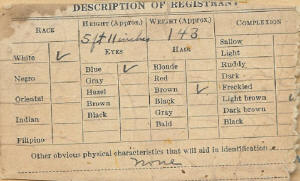 DESCRIPTION OF REGISTRANT
RACE HEIGHT (Approx.) WEIGHT (Approx.) COMPLEXION
5 ft 11 inches 143 Sallow
EYES HAIR Light
White ✓ Blue ✓ Blonde Ruddy
Gray Red Dark
Negro Hazel Brown ✓ Freckled
Oriental Brown Black Light brown ✓
Indian Black Gray Dark brown
Bald Black
Filipino
Other obvious physical characteristics that will aid in identification
None